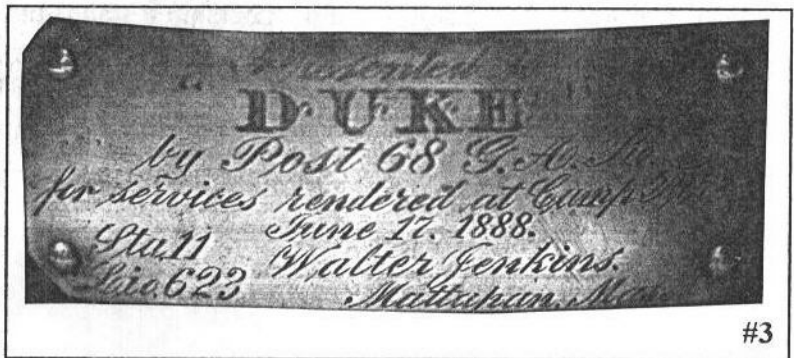 Presented
"DUKE"
by Post 68 G.A.R.
for services rendered at Camp
June 17. 1888.
Sta.11 Walter Jenkins.
Lic.623 Mattapan, Mass.
#3